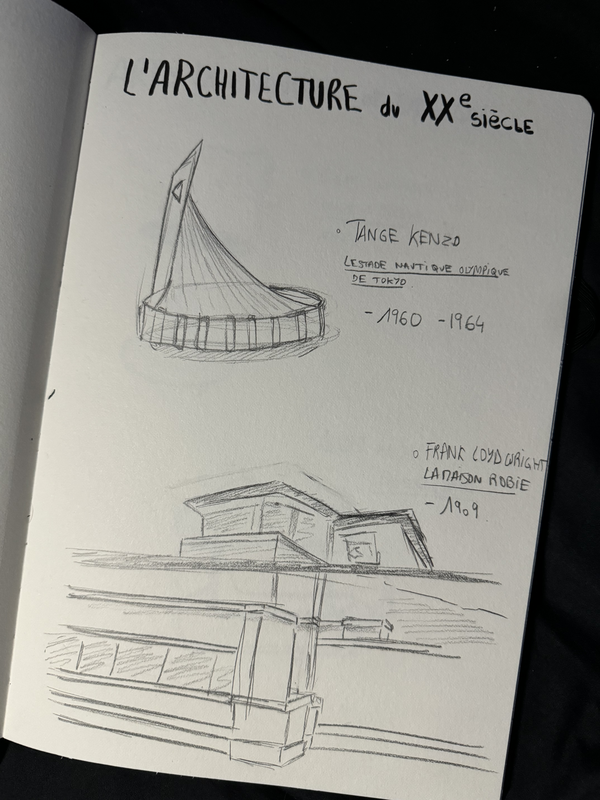 L'ARCHITECTURE du XXe SIÈCLE
TANGE KENZO
LE STADE NAUTIQUE OLYMPIQUE
DE TOKYO
- 1960 - 1964
FRANK LOYD WRIGHT
LA MAISON ROBIE
- 1909